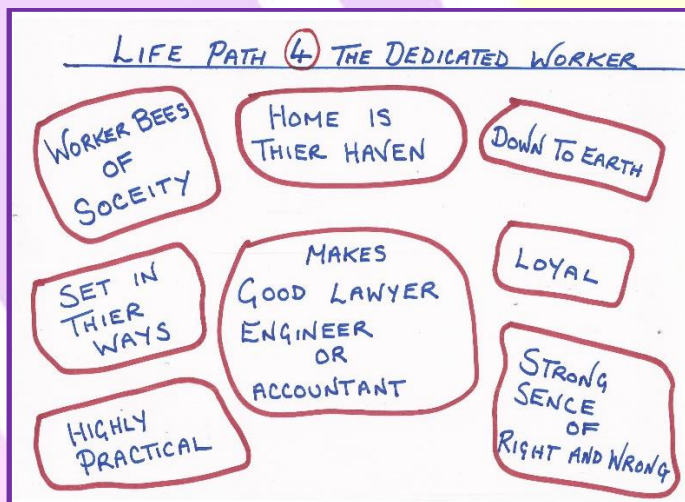 LIFE PATH 4 THE DEDICATED WORKER
WORKER BEES
OF
SOCEITY
HOME IS
THIER HAVEN
DOWN TO EARTH
SET IN
THIER
WAYS
MAKES
GOOD LAWYER
ENGINEER
OR
ACCOUNTANT
LOYAL
HIGHLY
PRACTICAL
STRONG
SENCE
OF
RIGHT AND WRONG